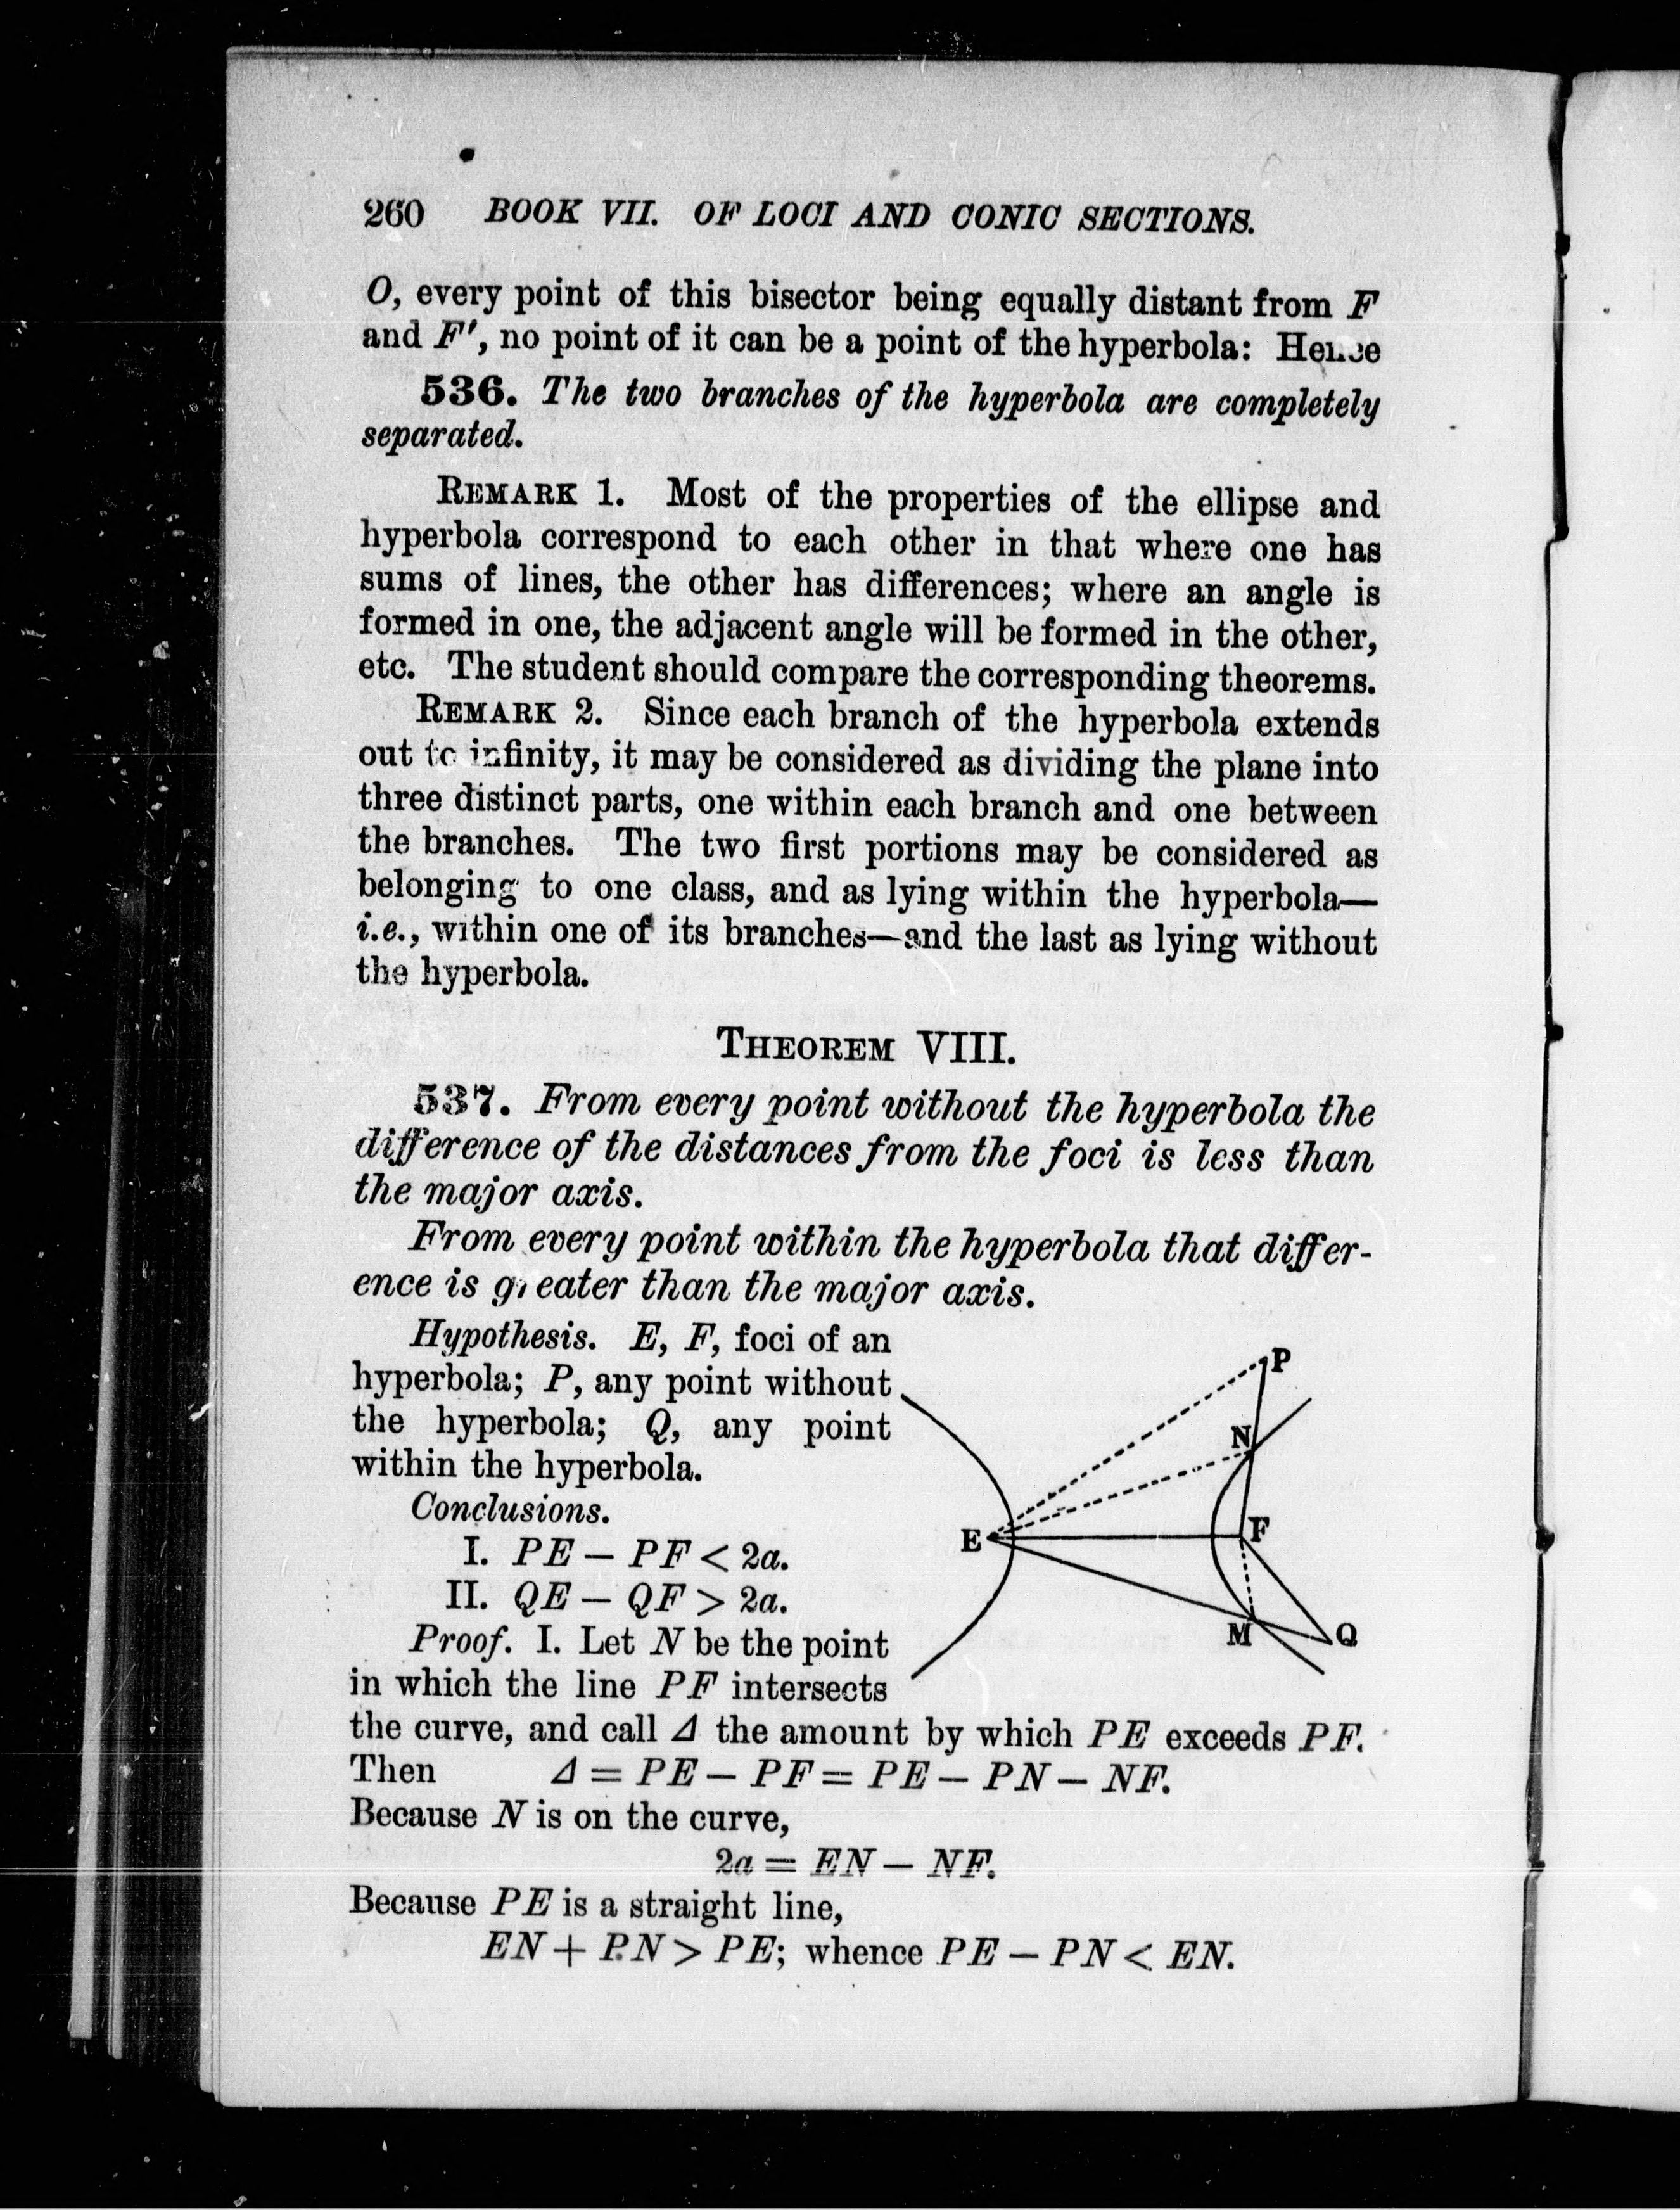 260 BOOK VII. OF LOCI AND CONIC SECTIONS.
O, every point of this bisector being equally distant from F
and F', no point of it can be a point of the hyperbola: Hence
536. The two branches of the hyperbola are completely
separated.
REMARK 1. Most of the properties of the ellipse and
hyperbola correspond to each other in that where one has
sums of lines, the other has differences; where an angle is
formed in one, the adjacent angle will be formed in the other,
etc. The student should compare the corresponding theorems.
REMARK 2. Since each branch of the hyperbola extends
out to infinity, it may be considered as dividing the plane into
three distinct parts, one within each branch and one between
the branches. The two first portions may be considered as
belonging to one class, and as lying within the hyperbola—
i.e., within one of its branches—and the last as lying without
the hyperbola.
THEOREM VIII.
537. From every point without the hyperbola the
difference of the distances from the foci is less than
the major axis.
From every point within the hyperbola that differ-
ence is greater than the major axis.
Hypothesis. E, F, foci of an
hyperbola; P, any point without
the hyperbola; Q, any point
within the hyperbola.
Conclusions.
I. PE – PF < 2a.
II. QE – QF > 2a.
Proof. I. Let N be the point
in which the line PF intersects
P
N
E
F
M
Q
the curve, and call Δ the amount by which PE exceeds PF.
Then Δ = PE – PF = PE – PN – NF.
Because N is on the curve,
2a = EN – NF.
Because PE is a straight line,
EN + PN > PE; whence PE – PN < EN.